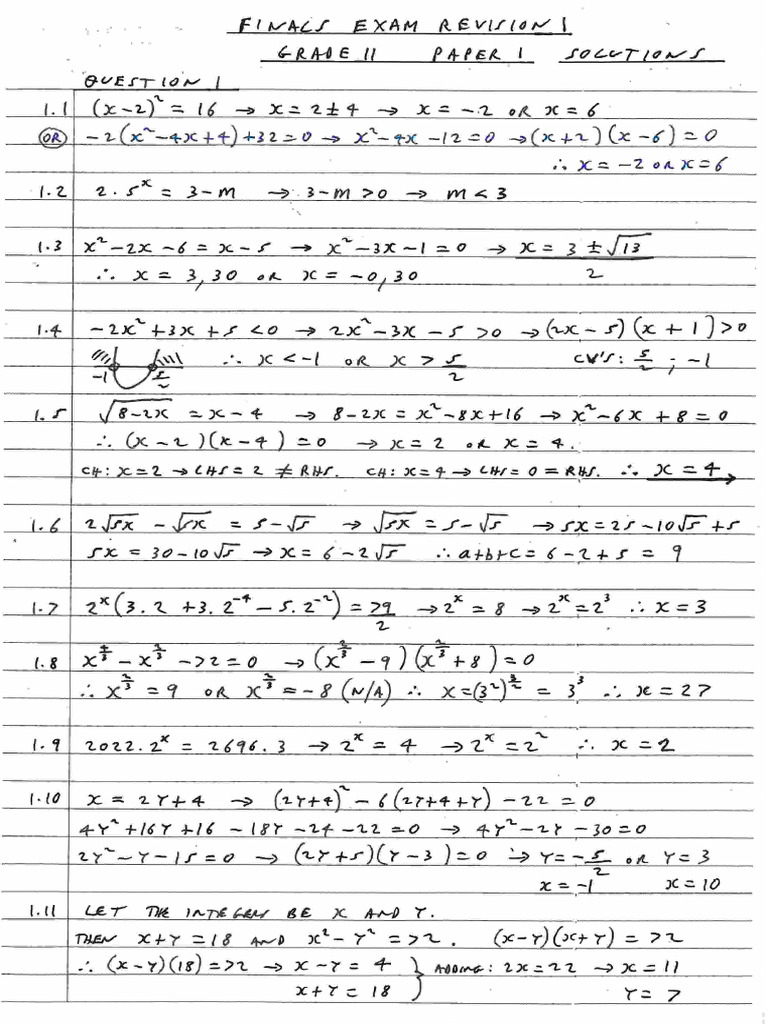 FINALS EXAM REVISION 1
GRADE 11 PAPER 1 SOLUTIONS
QUESTION 1
1.1 (x-2)² = 16 → x = 2 ± 4 → x = -2 OR x = 6
OR -2(x²-4x+4)+32=0 → x²-4x-12=0 → (x+2)(x-6)=0
∴ x = -2 OR x = 6
1.2 2.5ˣ = 3-m → 3-m>0 → m<3
1.3 x²-2x-6 = x-5 → x²-3x-1=0 → x = (3 ± √13)/2
∴ x = 3,30 OR x = -0,30
1.4 -2x²+3x+5<0 → 2x²-3x-5>0 → (2x-5)(x+1)>0
-1 5/2 ∴ x<-1 OR x > 5/2 CV'S: 5/2 ; -1
1.5 √(8-2x) = x-4 → 8-2x = x²-8x+16 → x²-6x+8=0
∴ (x-2)(x-4)=0 → x=2 OR x=4.
CH: x=2 → LHS=2 ≠ RHS. CH: x=4 → LHS=0=RHS. ∴ x=4
1.6 2√5x - √5x = 5-√5 → √5x = 5-√5 → 5x = 25-10√5+5
5x = 30-10√5 → x = 6-2√5 ∴ a+b+c = 6-2+5 = 9
1.7 2ˣ(3.2+3.2⁻⁴-5.2⁻²) = 79/2 → 2ˣ=8 → 2ˣ=2³ ∴ x=3
1.8 x^(4/3) - x^(2/3) - 72 = 0 → (x^(2/3) - 9)(x^(2/3) + 8) = 0
∴ x^(2/3) = 9 OR x^(2/3) = -8 (N/A) ∴ x = (3²)^(3/2) = 3³ ∴ x = 27
1.9 2022.2ˣ = 2696.3 → 2ˣ=4 → 2ˣ=2² ∴ x=2
1.10 x = 2Y+4 → (2Y+4)² - 6(2Y+4+Y) - 22 = 0
4Y²+16Y+16-18Y-24-22=0 → 4Y²-2Y-30=0
2Y²-Y-15=0 → (2Y+5)(Y-3)=0 → Y = -5/2 OR Y=3
x=-1 x=10
1.11 LET THE INTEGERS BE X AND Y.
THEN X+Y=18 AND X²-Y²=72. (X-Y)(X+Y)=72
∴ (X-Y)(18)=72 → X-Y=4 } ADDING: 2X=22 → X=11
X+Y=18 Y=7